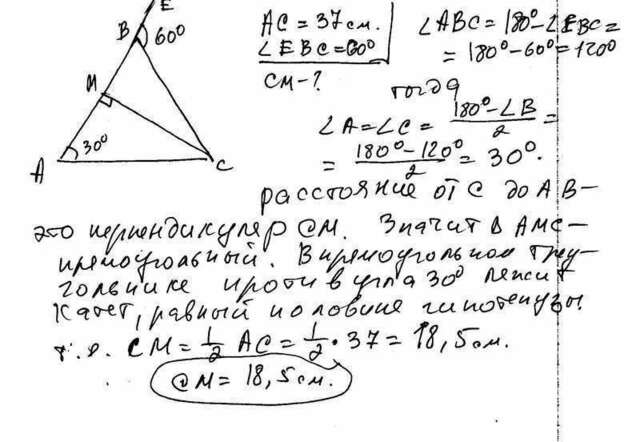 E
B 60°
M
30°
A
C
AC = 37 см.
∠EBC = 60°
CM - ?
∠ABC = 180° - ∠EBC =
= 180° - 60° = 120°
тогда
∠A = ∠C = (180° - ∠B)/2 =
= (180° - 120°)/2 = 30°.
расстояние от C до AB -
это перпендикуляр CM. Значит Δ AMC -
прямоугольный. В прямоугольном треу-
гольнике против угла 30° лежит
катет, равный половине гипотенузы.
т.е. CM = 1/2 AC = 1/2 · 37 = 18,5 см.
CM = 18,5 см.